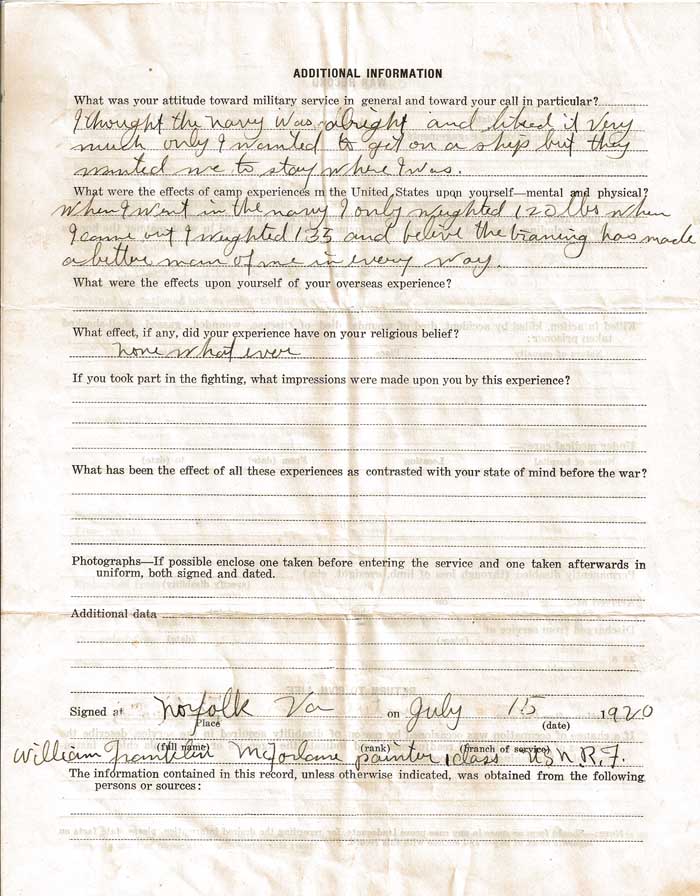 ADDITIONAL INFORMATION
What was your attitude toward military service in general and toward your call in particular?
I thought the navy was alright and liked it very
much only I wanted to get on a ship but they
wanted me to stay where I was.
What were the effects of camp experiences in the United States upon yourself—mental and physical?
When I went in the navy I only weighted 120 lbs when
I came out I weighted 135 and belive the traning has made
a better man of me in every way.
What were the effects upon yourself of your overseas experience?
What effect, if any, did your experience have on your religious belief?
none what ever
If you took part in the fighting, what impressions were made upon you by this experience?
What has been the effect of all these experiences as contrasted with your state of mind before the war?
Photographs—If possible enclose one taken before entering the service and one taken afterwards in
uniform, both signed and dated.
Additional data
Signed at Norfolk Va on July 15 1920
Place (date)
(full name) (rank) (branch of service)
William Franklin McForlane painter 1 class U.S.N.R.F.
The information contained in this record, unless otherwise indicated, was obtained from the following
persons or sources: